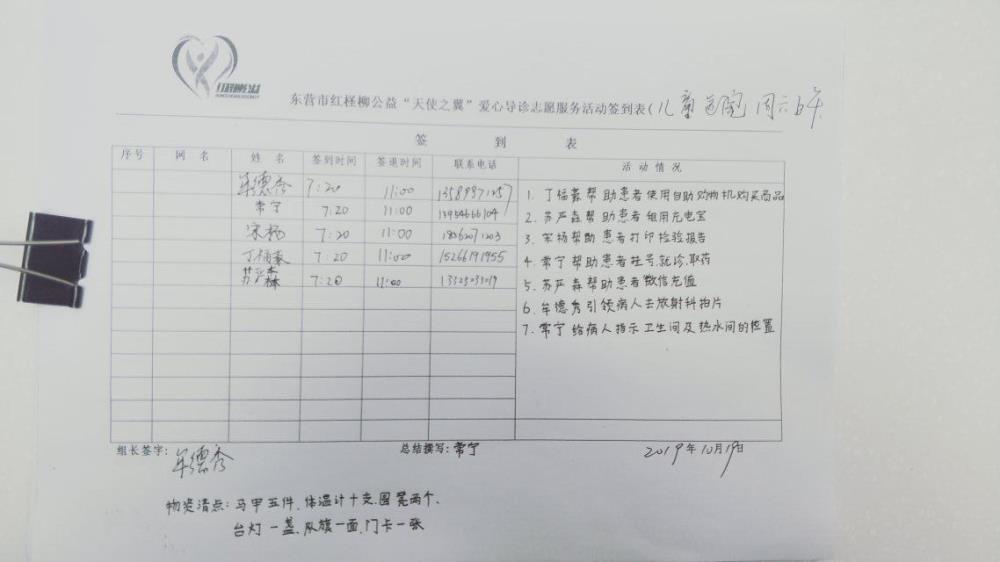 东营市红柽柳公益“天使之翼”爱心导诊志愿服务活动签到表(儿童医院 周六上午
签 到 表
序号 网 名 姓 名 签到时间 签退时间 联系电话 活动情况
牟德秀 7:20 11:00
常宁 7:20 11:00 13954666104
宋杨 7:20 11:00 18562071203
丁福豪 7:20 11:00 15266191955
苏严森 7:20 11:00
1. 丁福豪帮助患者使用自助购物机购买商品
2. 苏严森帮助患者租用充电宝
3. 宋杨帮助患者打印检验报告
4. 常宁帮助患者挂号、就诊、取药
5. 苏严森帮助患者微信充值
6. 牟德秀引领病人去放射科拍片
7. 常宁给病人指示卫生间及热水间的位置
组长签字: 牟德秀 总结撰写: 常宁 2019年10月19日
物资清点: 马甲五件、体温计十支、圆凳两个、
台灯一盏、队旗一面、门卡一张